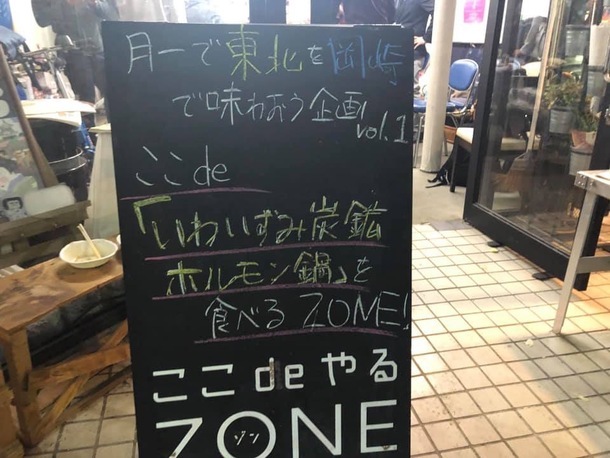 月一で東北を岡崎
で味わおう企画
vol.1
ここde
「いわいずみ炭鉱
ホルモン鍋」を
食べるZONE!
ここdeやる
ZONE
ゾン